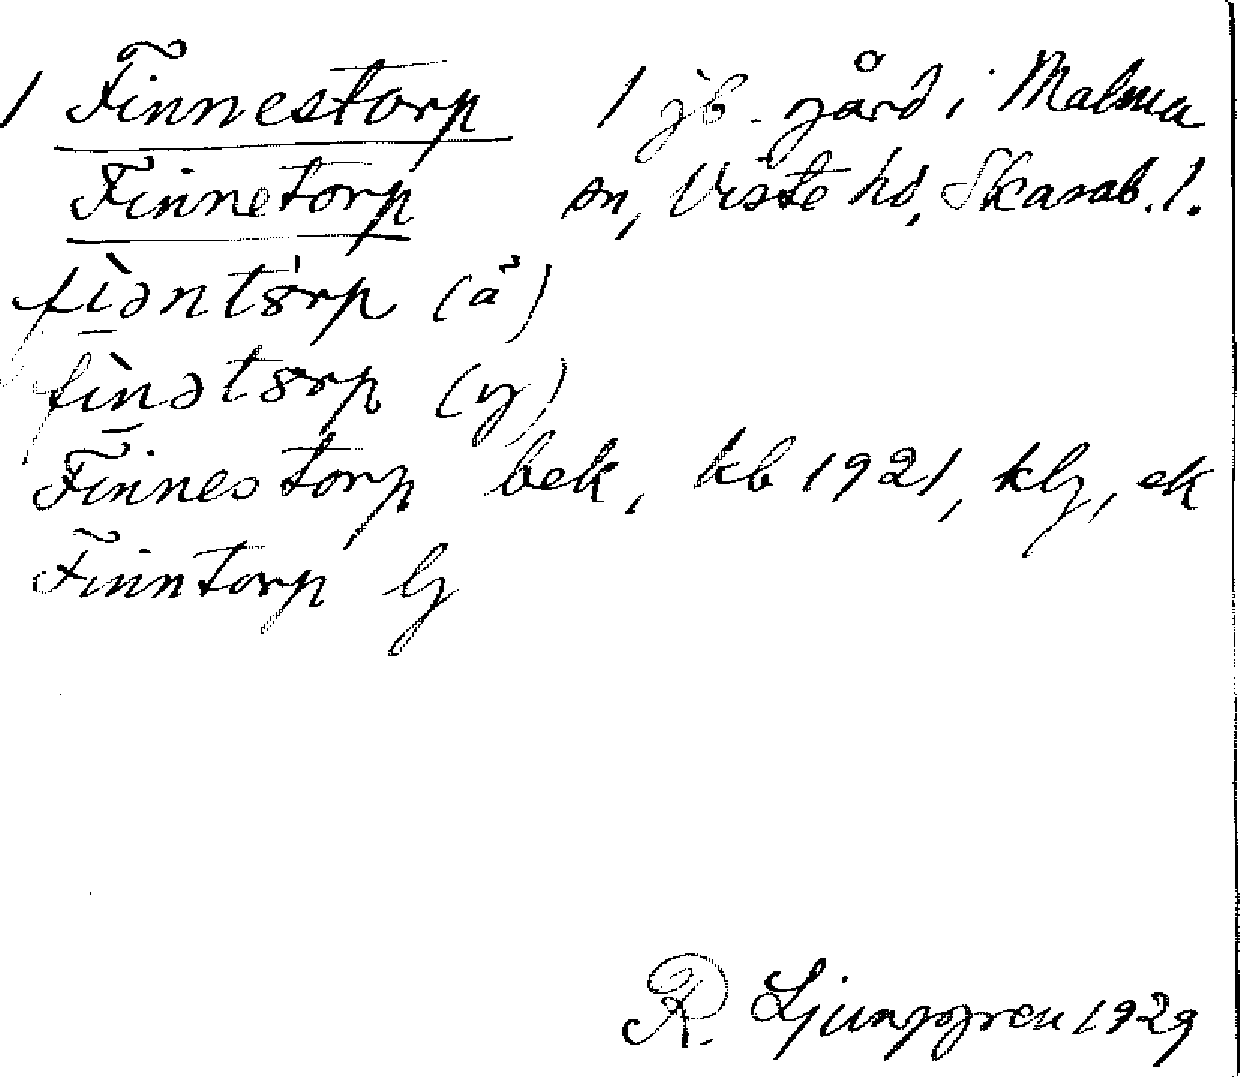 1 Finnestorp 1 jb. gård i Malma
Finnetorp sn, Viste hd, Skarab. l.
fìəntərp (ä)
fìnətərp (y)
Finnestorp bek, kb 1921, klj, ek
Finntorp lj
R. Ljunggren 1929